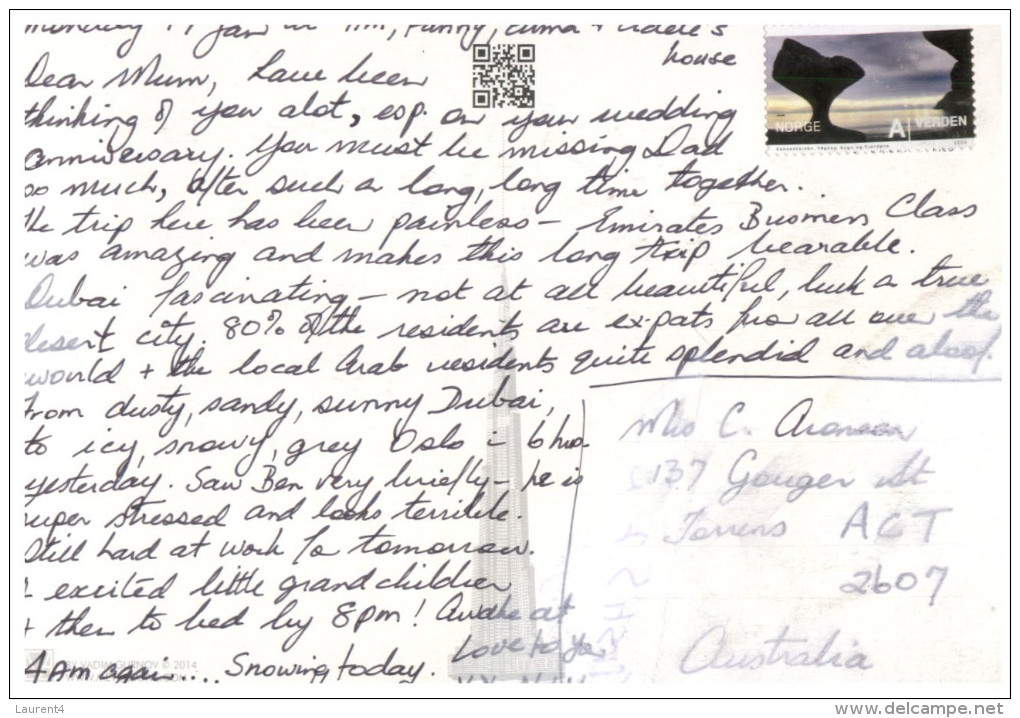 Monday 19 Jan at Tim, Fanny, Emma + Adele's
house
Dear Mum, Have been
thinking of you alot, esp. on your wedding
anniversary. You must be missing Dad
so much, after such a long, long time together.
The trip here has been painless – Emirates Business Class
was amazing and makes this long trip bearable.
Dubai fascinating – not at all beautiful, but a true
desert city. 80% of the residents are ex-pats from all over the
world + the local Arab residents quite splendid and aloof.
From dusty, sandy, sunny Dubai,
to icy, snowy, grey Oslo in 6 hrs
yesterday. Saw Ben very briefly – he is
super stressed and looks terrible.
Still hard at work for tomorrow.
2 excited little grandchildren
+ then to bed by 8pm! Awake at
4am again... Snowing today.
Love to you
Mrs C. Aronson
137 Gouger St
Torrens ACT
2607
Australia
NORGE
A VERDEN
BY VADIM GURNOV © 2014
Laurent4
http://www.delcampe.net